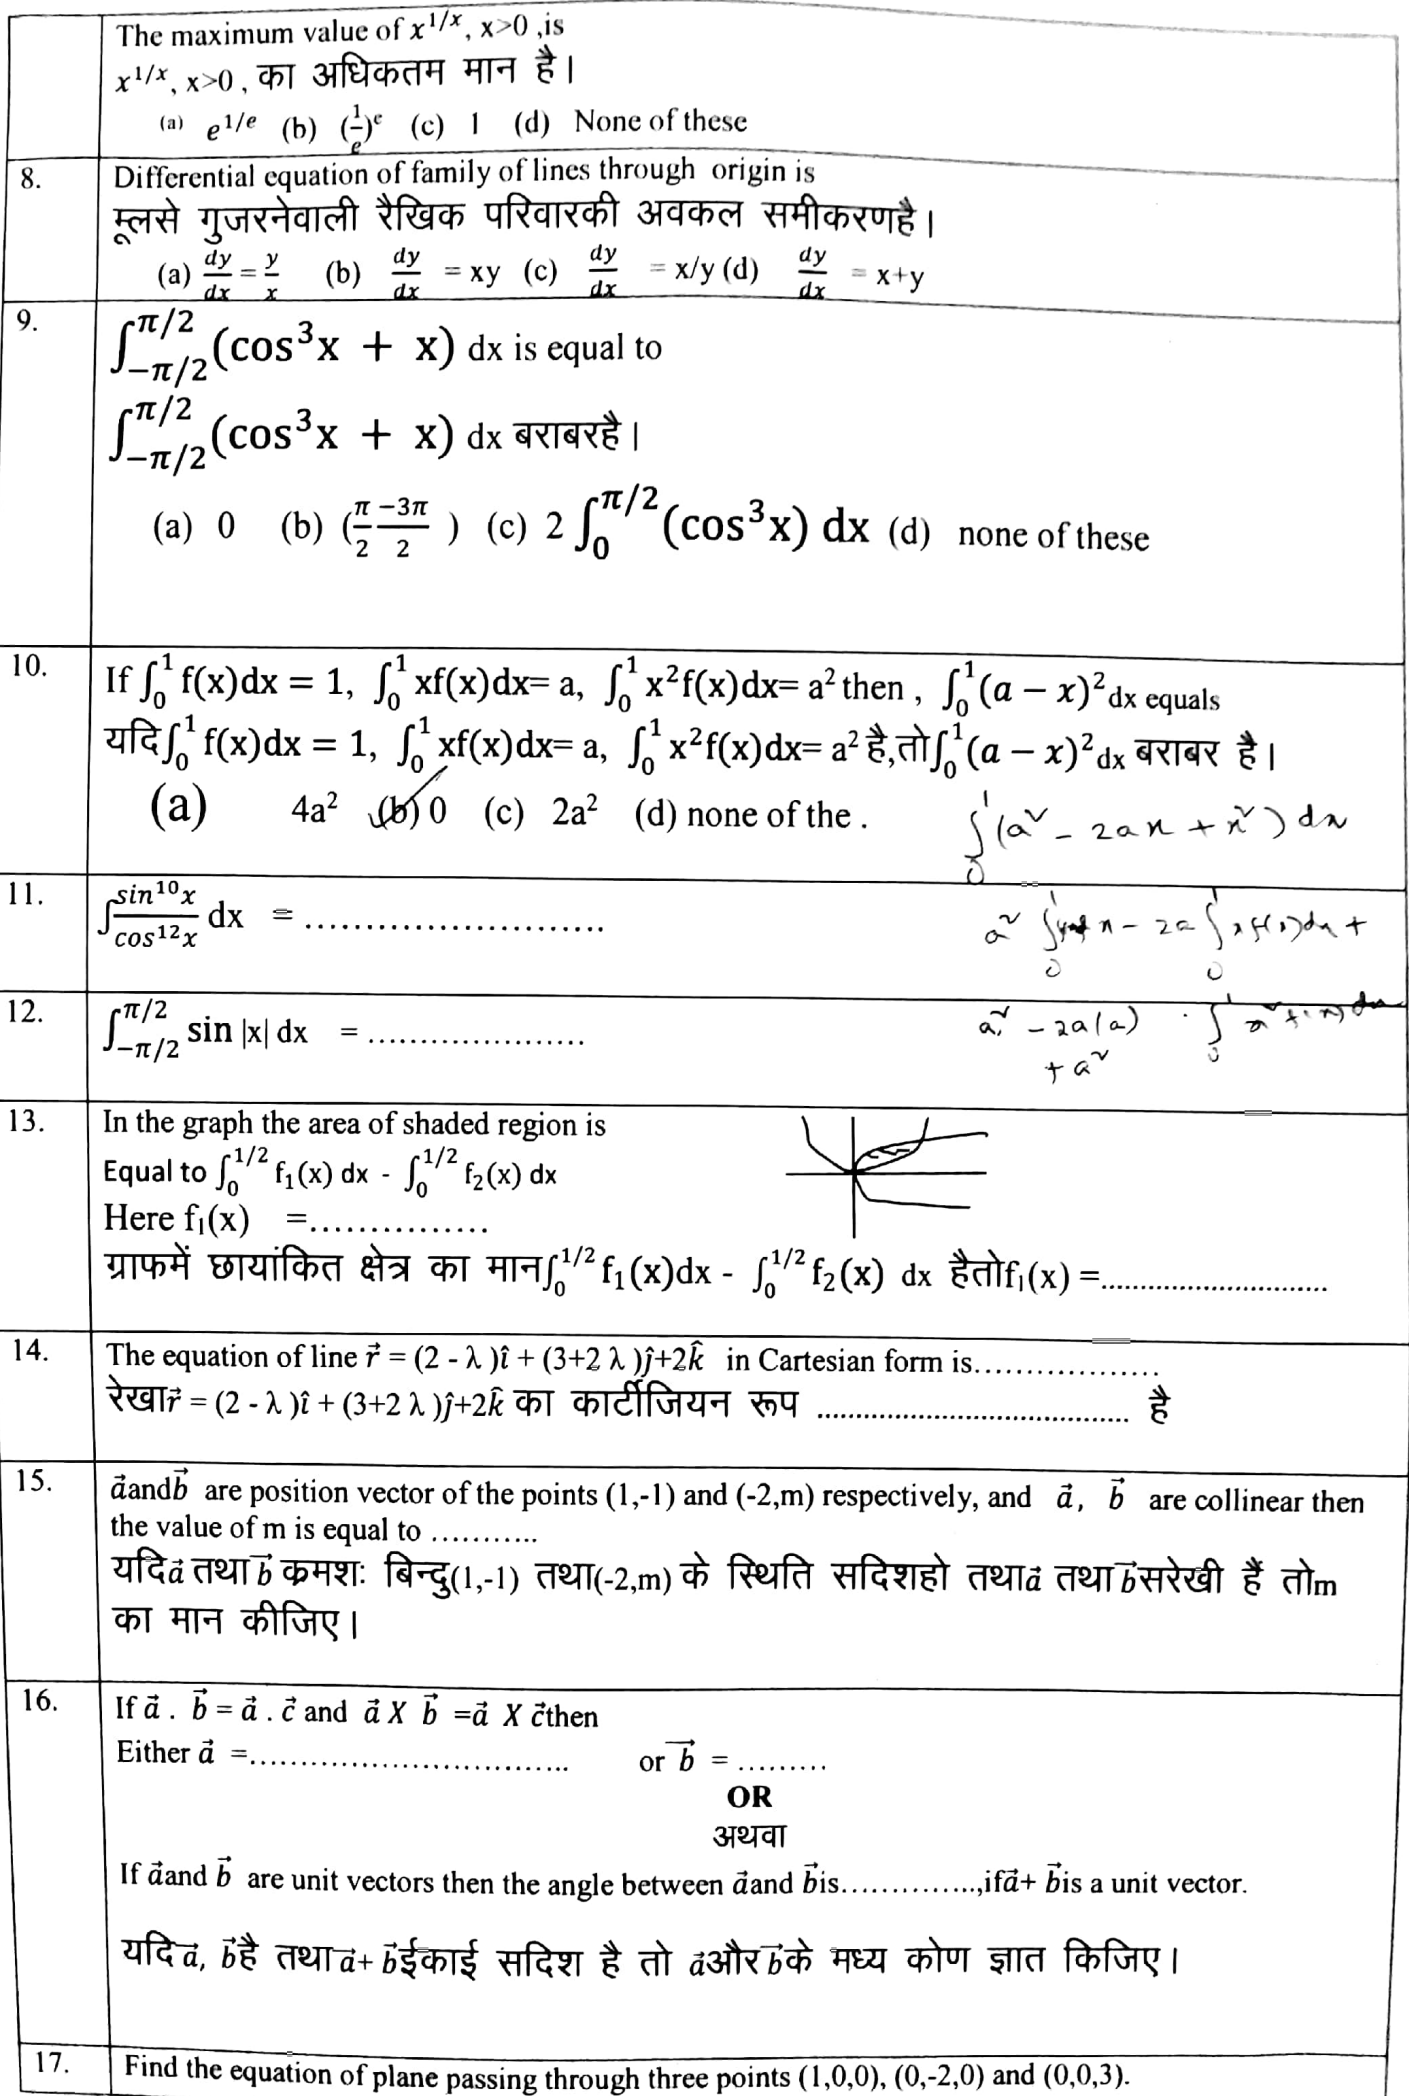 The maximum value of x^{1/x}, x>0 ,is
x^{1/x}, x>0 , का अधिकतम मान है।
(a) e^{1/e} (b) (1/e)^e (c) 1 (d) None of these
8. Differential equation of family of lines through origin is
मूलसे गुजरनेवाली रैखिक परिवारकी अवकल समीकरणहै।
(a) dy/dx = y/x (b) dy/dx = xy (c) dy/dx = x/y (d) dy/dx = x+y
9. ∫_{-π/2}^{π/2} (cos³x + x) dx is equal to
∫_{-π/2}^{π/2} (cos³x + x) dx बराबरहै।
(a) 0 (b) (π/2 -3π/2 ) (c) 2 ∫_0^{π/2} (cos³x) dx (d) none of these
10. If ∫_0^1 f(x)dx = 1, ∫_0^1 xf(x)dx= a, ∫_0^1 x²f(x)dx= a² then , ∫_0^1 (a − x)² dx equals
यदि ∫_0^1 f(x)dx = 1, ∫_0^1 xf(x)dx= a, ∫_0^1 x²f(x)dx= a² है,तो ∫_0^1 (a − x)² dx बराबर है।
(a) 4a² (b) 0 (c) 2a² (d) none of the .
∫_0^1 (a² - 2ax + x²) dx
11. ∫ sin¹⁰x/cos¹²x dx = ..............................
a² ∫_0^1 x - 2a ∫_0^1 x f(x)dx +
12. ∫_{-π/2}^{π/2} sin |x| dx = .....................
a² - 2a(a) ∫_0^1 x² f(x) dx
+ a²
13. In the graph the area of shaded region is
Equal to ∫_0^{1/2} f₁(x) dx - ∫_0^{1/2} f₂(x) dx
Here f₁(x) =...............
ग्राफमें छायांकित क्षेत्र का मान ∫_0^{1/2} f₁(x)dx - ∫_0^{1/2} f₂(x) dx हैतोf₁(x) =............................
14. The equation of line r⃗ = (2 - λ )î + (3+2 λ )ĵ+2k̂ in Cartesian form is..................
रेखाr⃗ = (2 - λ )î + (3+2 λ )ĵ+2k̂ का कार्टीजियन रूप ........................................ है
15. a⃗andb⃗ are position vector of the points (1,-1) and (-2,m) respectively, and a⃗, b⃗ are collinear then
the value of m is equal to ...........
यदिa⃗ तथा b⃗ क्रमशः बिन्दु(1,-1) तथा(-2,m) के स्थिति सदिशहो तथाa⃗ तथा b⃗सरेखी हैं तोm
का मान कीजिए।
16. If a⃗ . b⃗ = a⃗ . c⃗ and a⃗ X b⃗ =a⃗ X c⃗then
Either a⃗ =............................... or b⃗ = .........
OR
अथवा
If a⃗and b⃗ are unit vectors then the angle between a⃗and b⃗is..............,ifa⃗+ b⃗is a unit vector.
यदि a⃗, b⃗है तथा a⃗+ b⃗ईकाई सदिश है तो a⃗और b⃗के मध्य कोण ज्ञात किजिए।
17. Find the equation of plane passing through three points (1,0,0), (0,-2,0) and (0,0,3).